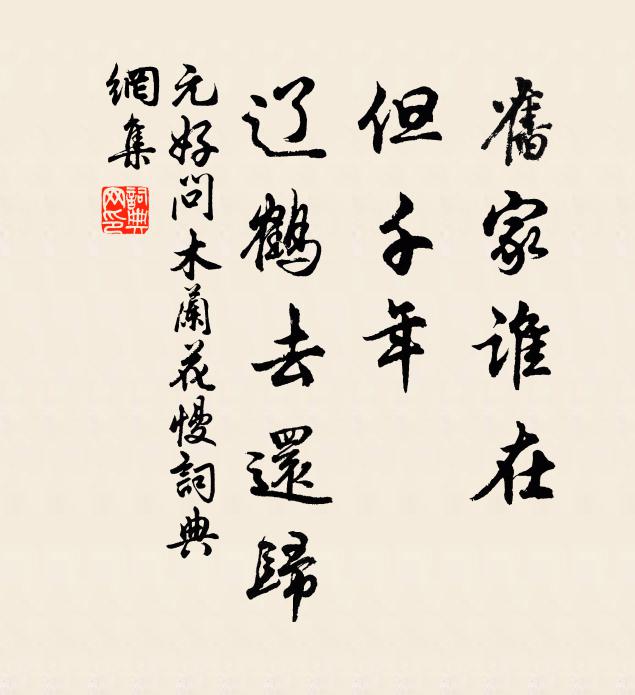 舊家誰在
但千年
辽鶴去還歸
元好問木蘭花慢詞典
網集
詞典
网印